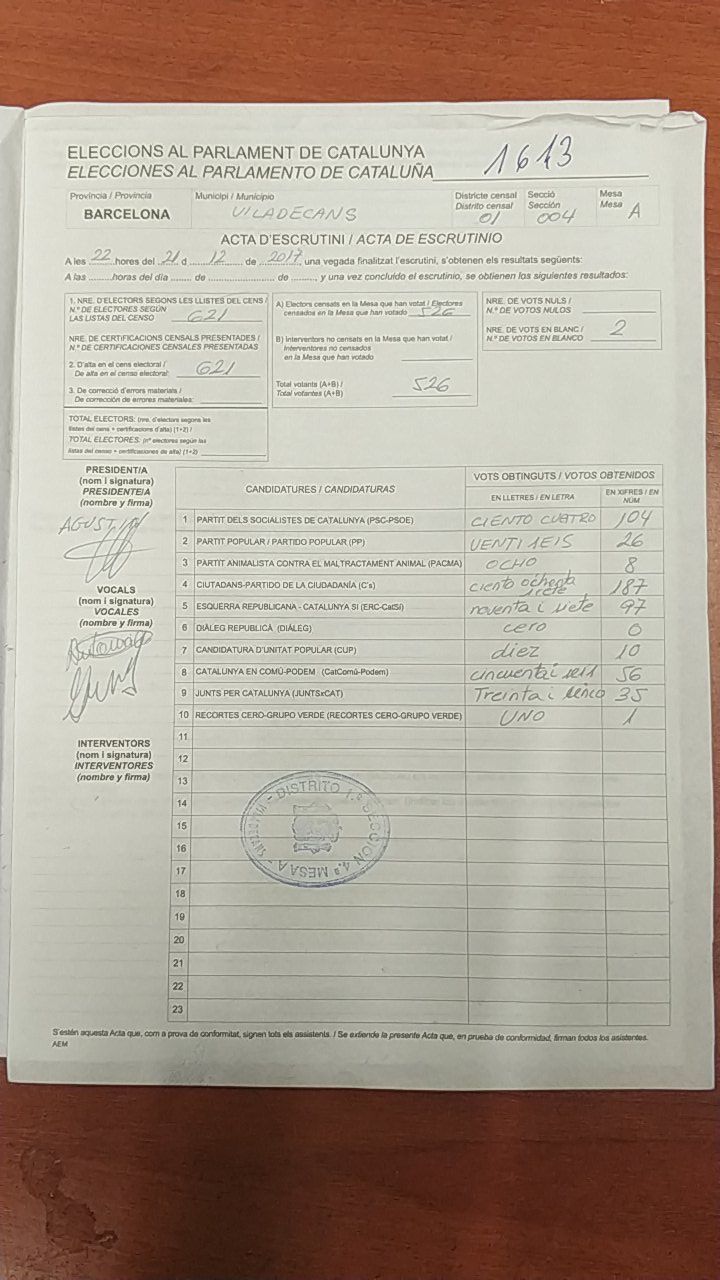 ELECCIONS AL PARLAMENT DE CATALUNYA
ELECCIONES AL PARLAMENTO DE CATALUÑA
1613
Província / Provincia
BARCELONA
Municipi / Municipio
VILADECANS
Districte censal
Distrito censal
01
Secció
Sección
004
Mesa
Mesa
A
ACTA D'ESCRUTINI / ACTA DE ESCRUTINIO
A les 22 hores del 21 d 12 de 2017, una vegada finalitzat l'escrutini, s'obtenen els resultats següents:
A las ........horas del día ....... de ..................... de ........, y una vez concluído el escrutinio, se obtienen los siguientes resultados:
1. NRE. D'ELECTORS SEGONS LES LLISTES DEL CENS /
N.º DE ELECTORES SEGÚN
LAS LISTAS DEL CENSO 621
NRE. DE CERTIFICACIONS CENSALS PRESENTADES /
N.º DE CERTIFICACIONES CENSALES PRESENTADAS
2. D'alta en el cens electoral /
De alta en el censo electoral: 621
3. De correcció d'errors materials /
De corrección de errores materiales:
TOTAL ELECTORS: (nre. d'electors segons les
llistes del cens + certificacions d'alta) (1+2) /
TOTAL ELECTORES: (nº electores según las
listas del censo + certificaciones de alta) (1+2)
A) Electors censats en la Mesa que han votat / Electores
censados en la Mesa que han votado 526
B) Interventors no censats en la Mesa que han votat /
Interventores no censados
en la Mesa que han votado
Total votants (A+B) /
Total votantes (A+B) 526
NRE. DE VOTS NULS /
N.º DE VOTOS NULOS
NRE. DE VOTS EN BLANC /
N.º DE VOTOS EN BLANCO 2
PRESIDENT/A
(nom i signatura)
PRESIDENTE/A
(nombre y firma)
AGUSTIN
VOCALS
(nom i signatura)
VOCALES
(nombre y firma)
INTERVENTORS
(nom i signatura)
INTERVENTORES
(nombre y firma)
CANDIDATURES / CANDIDATURAS
VOTS OBTINGUTS / VOTOS OBTENIDOS
EN LLETRES / EN LETRA
EN XIFRES / EN NÚM
1 PARTIT DELS SOCIALISTES DE CATALUNYA (PSC-PSOE) CIENTO CUATRO 104
2 PARTIT POPULAR / PARTIDO POPULAR (PP) VENTISEIS 26
3 PARTIT ANIMALISTA CONTRA EL MALTRACTAMENT ANIMAL (PACMA) OCHO 8
4 CIUTADANS-PARTIDO DE LA CIUDADANÍA (C's) ciento ochenta siete 187
5 ESQUERRA REPUBLICANA - CATALUNYA SÍ (ERC-CatSí) noventa i siete 97
6 DIÀLEG REPUBLICÀ (DIÀLEG) cero 0
7 CANDIDATURA D'UNITAT POPULAR (CUP) diez 10
8 CATALUNYA EN COMÚ-PODEM (CatComú-Podem) cincuenta i seis 56
9 JUNTS PER CATALUNYA (JUNTSxCAT) Treinta i cinco 35
10 RECORTES CERO-GRUPO VERDE (RECORTES CERO-GRUPO VERDE) UNO 1
11
12
13
14
15
16
17
18
19
20
21
22
23
VILADECANS - DISTRITO 1.º SECCION 4.ª MESA A
S'estén aquesta Acta que, com a prova de conformitat, signen tots els assistents. / Se extiende la presente Acta que, en prueba de conformidad, firman todos los asistentes.
AEM